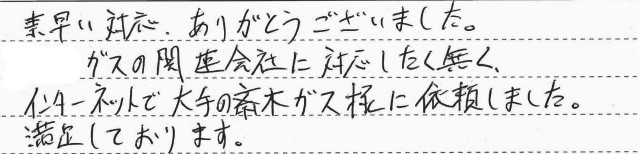 素早い対応、ありがとうございました。
ガスの関連会社に対応したく無く、
インターネットで大手の斎木ガス様に依頼しました。
満足しております。